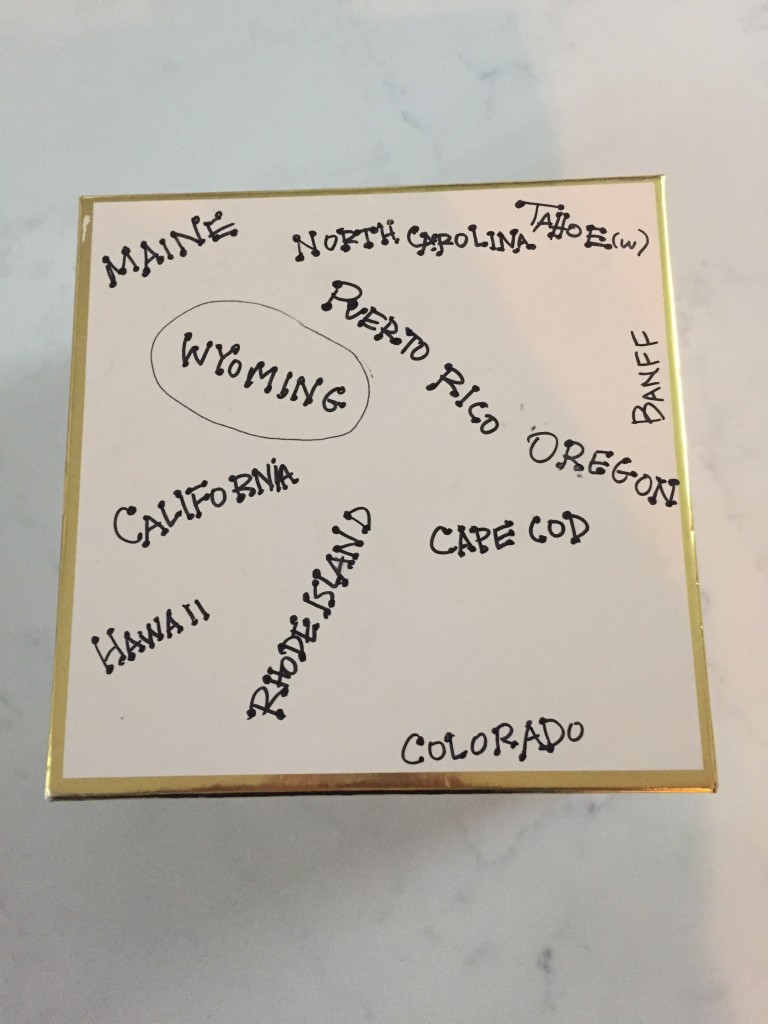 MAINE
NORTH CAROLINA
TAHOE (W)
PUERTO RICO
WYOMING
BANFF
OREGON
CALIFORNIA
CAPE COD
RHODE ISLAND
HAWAII
COLORADO